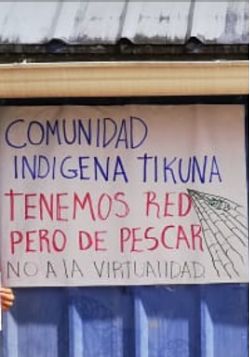 COMUNIDAD
INDIGENA TIKUNA
TENEMOS RED
PERO DE PESCAR
NO A LA VIRTUALIDAD